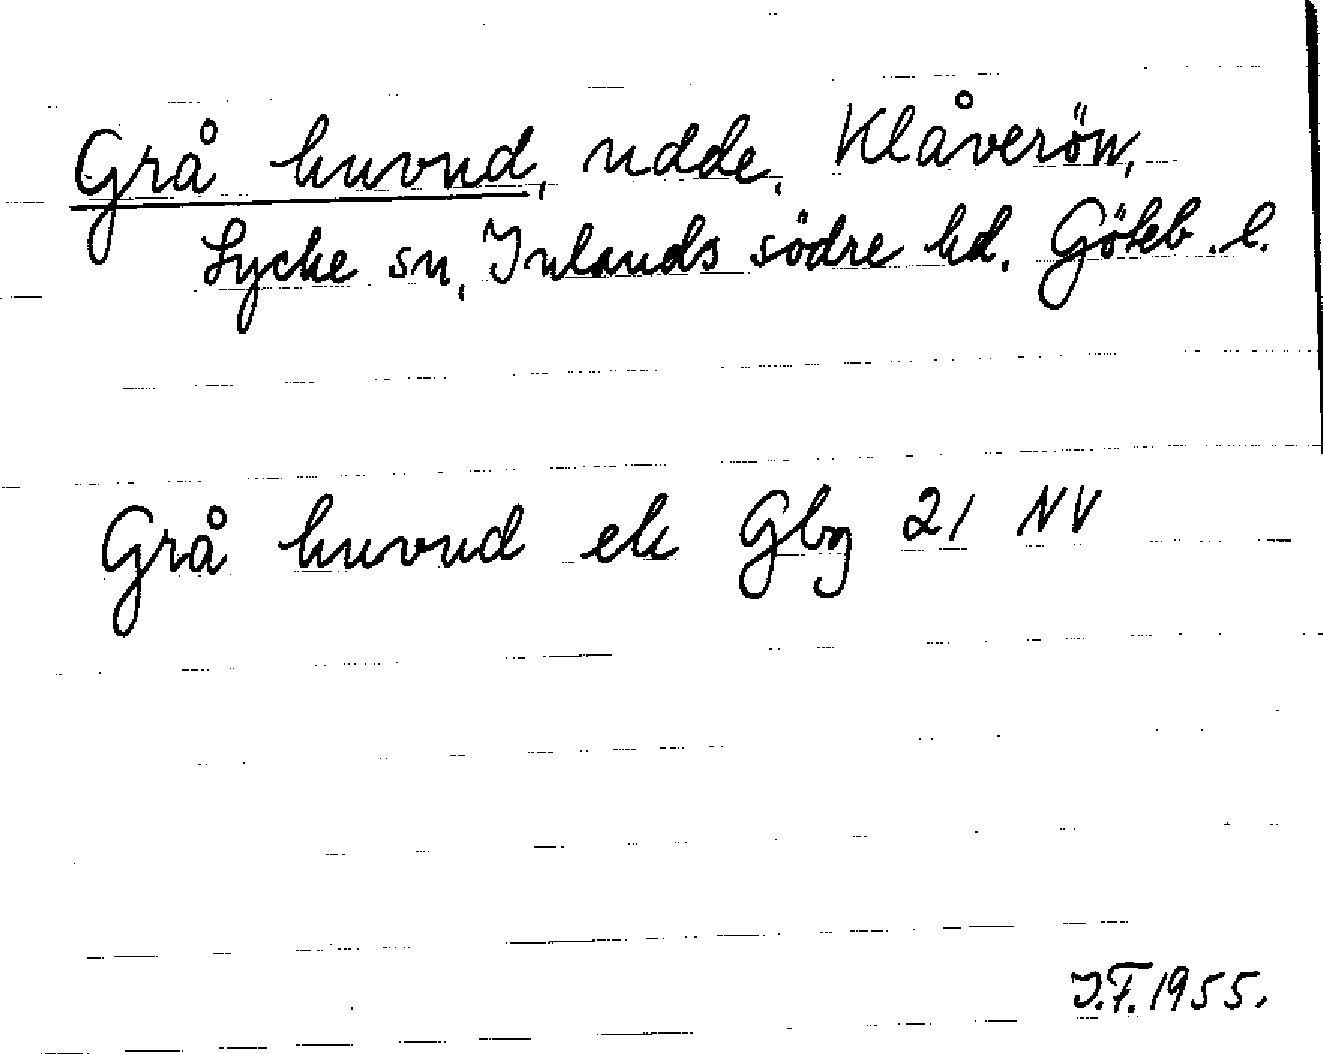 Grå huvud, udde, Klåverön,
Lycke sn, Inlands södre hd. Göteb. l.
Grå huvud ek Gbg 21 NV
I.F. 1955.